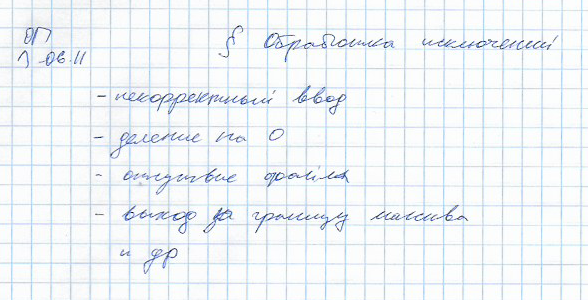 ОП
Л 06.11
§ Обработка исключений
- некорректный ввод
- деление на 0
- отсутствие файла
- выход за границу массива
и др